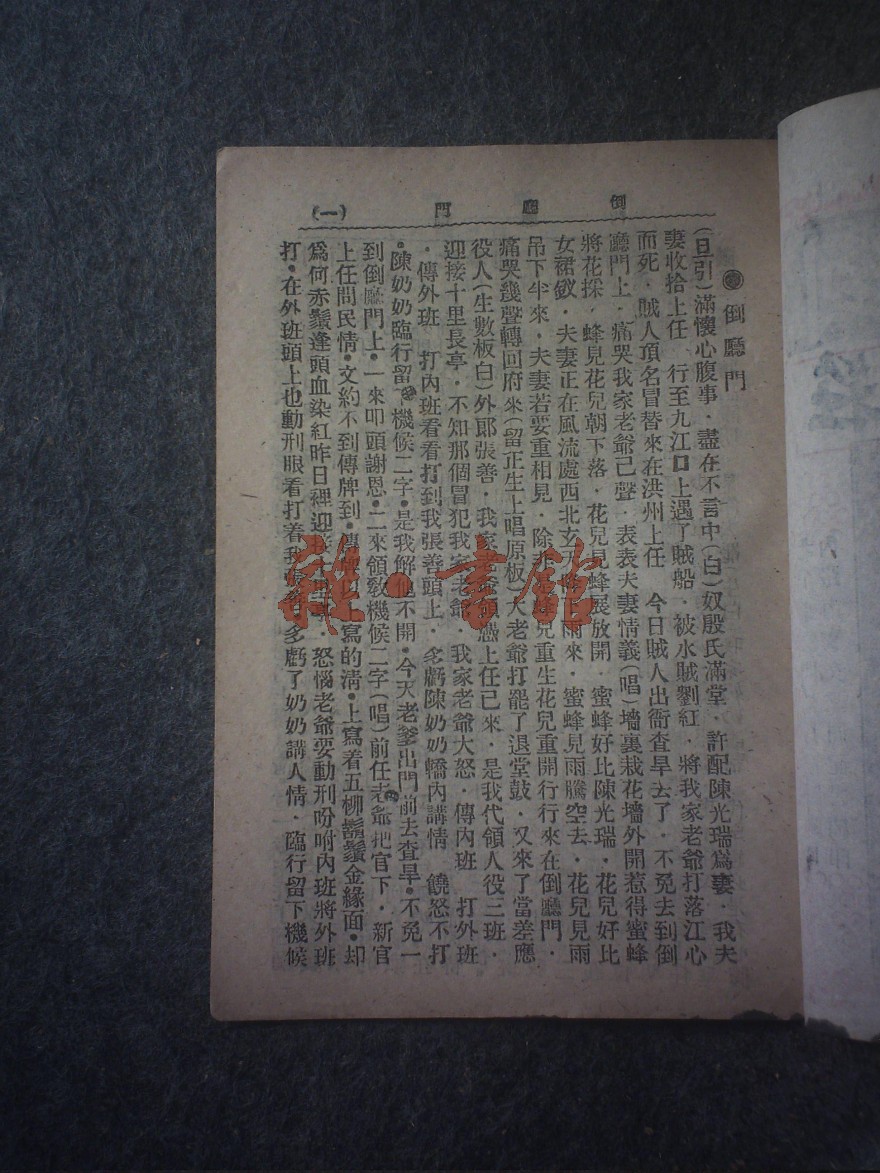 倒廳門 (一)
倒廳門
(旦引)滿懷心腹事．盡在不言中(白)奴殷氏滿堂．許配陳光瑞爲妻．我夫
妻收拾上任 行至九江口上遇了賊船．被水賊劉紅．將我家老爺打落江心
而死．賊人頂名冒替來在洪州上任 今日賊人出衙查旱去了．不免去到倒
廳門上．痛哭我家老爺已聲．表表夫妻情義(唱)墻裏栽花墻外開惹得蜜蜂
將花採．蜂見花兒朝下落．花兒見蜂展放開．蜜蜂好比陳光瑞．花兒好比
女裙釵．夫妻正在風流處西北玄天 雨來．蜜蜂見雨騰空去．花兒見雨
吊下半來．夫妻若要重相見．除 兒重生花兒重開行行來在倒廳門．
痛哭幾聲轉回府來(留正生上唱原板)大老爺打罷了退堂鼓．又來了當差應
役人(生數板白)外郎張善．我家 爺領憑上任已來．是我代領人役三班．
迎接十里長亭．不知那個冒犯我家老爺．我家老爺大怒．傳內班 打外班
．傳外班 打內班看看打到我張善頭上．多虧陳奶奶轎內講情 饒恕不打
．陳奶奶臨行留下機候二字．是我解他不開．今天老爹出門前去查旱．不免一
到倒廳門上．一來叩頭謝恩．二來領教機候二字(唱)前任老爺把官下．新官
上任問民情．文約不到傳牌到． 上寫的淸．上寫着五柳鬍鬚金緣面．却
爲何赤鬚蓬頭血染紅昨日裡迎接 ．怒惱老爺要動刑吩咐內班將外班
打．在外班頭上也動刑眼看打着我 多虧了奶奶講人情．臨行留下機候
雜·書館